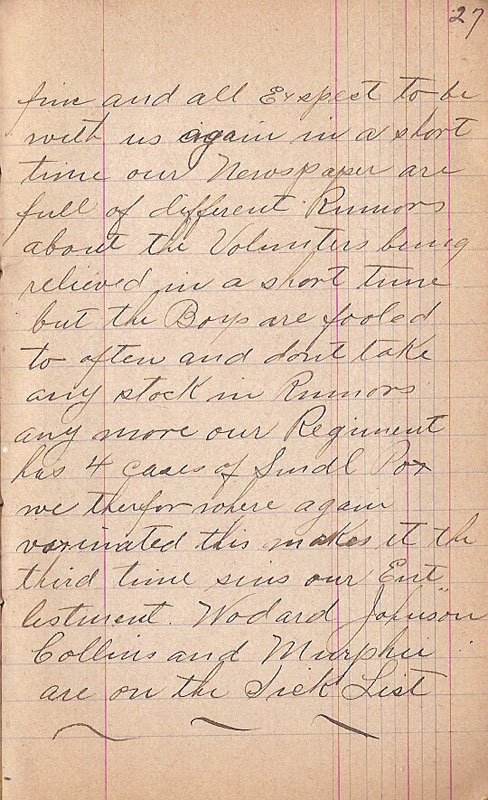 27
fine and all Exspect to be
with us again in a short
time our Newspaper are
full of different Rumors
about the Volunters being
relieved in a short time
but the Boys are fooled
to often and dont take
any stock in Rumors
any more our Regiment
has 4 cases of Smal Pox
we therfor where again
vaxinated this makes it the
third time sins our Ent
listment. Wodard Johnson
Collins and Murphie
are on the Sick List